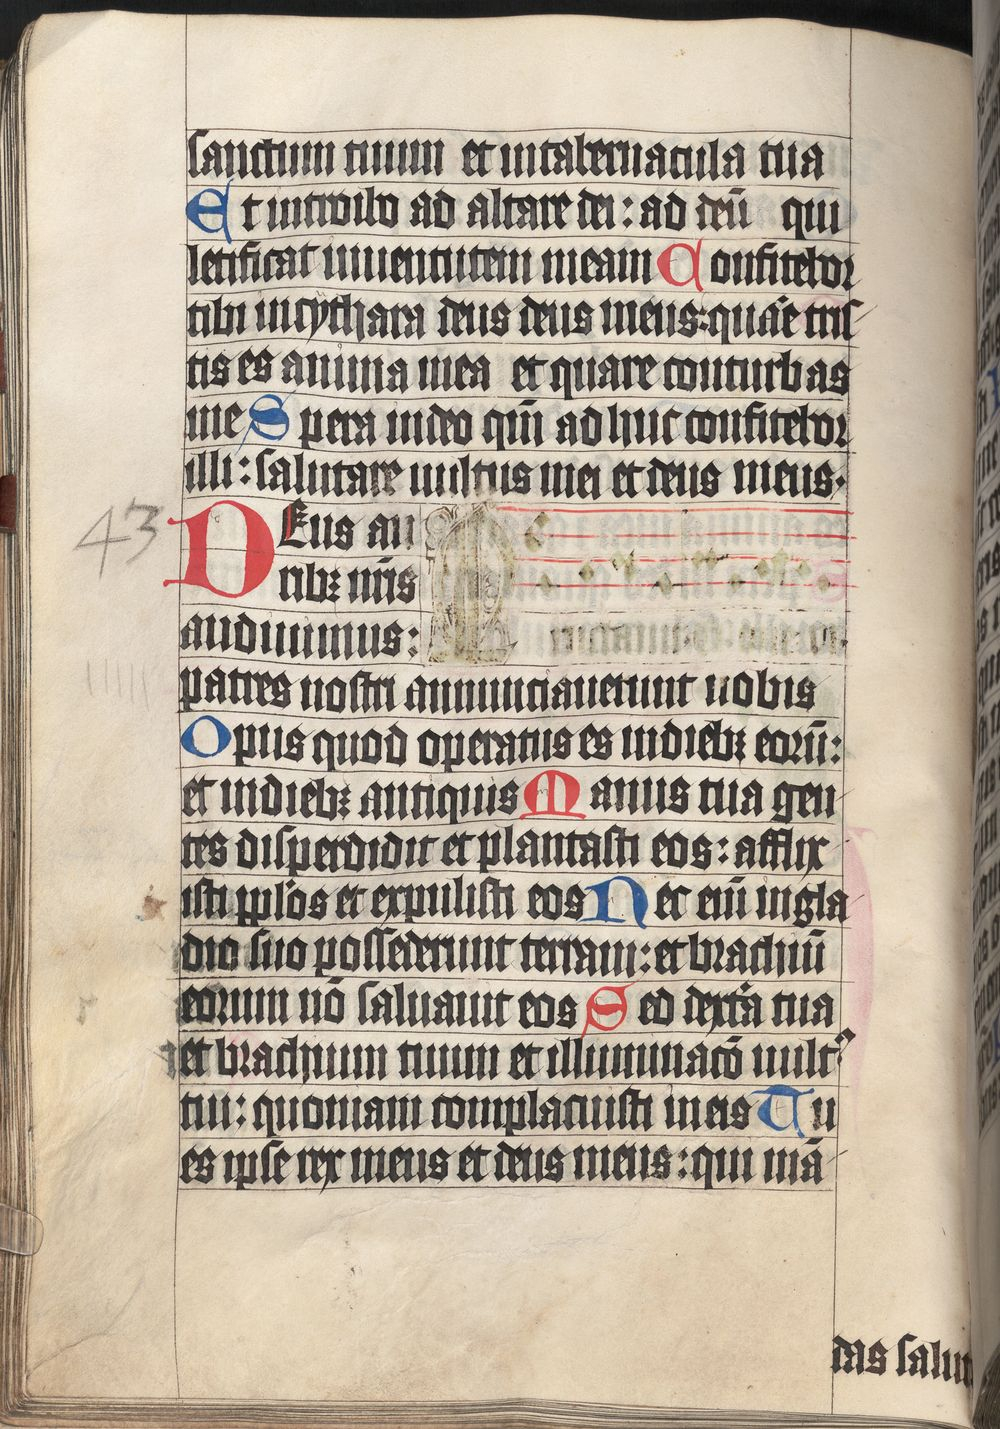 sanctum tuum et intabernacula tua
Et introibo ad altare dei: ad deū qui
letificat iuuentutem meam Confitebor
tibi incythara deus deus meus: quáe tris
tis es anima mea et quare conturbas
me Spera indeo qm̄ adhuc confitebor
illi: salutare uultus mei et deus meus.
43 DEus au
ribꝫ nr̄is
audiuimus:
patres nostri annunciauerunt nobis
Opus quod operatus es indiebꝫ eorū:
et indiebꝫ antiquis Manus tua gen
tes disperdidit et plantasti eos: afflix
isti pp̄los et expulisti eos Nec eni̅ ingla
dio suo possederunt terram: et brachiū
eorum nō saluauit eos Sed dextá tua
et brachium tuum et illuminacō uult
tui: quoniam complacuisti ineis Tu
es ipse rex meus et deus meus: qui mā
das salut